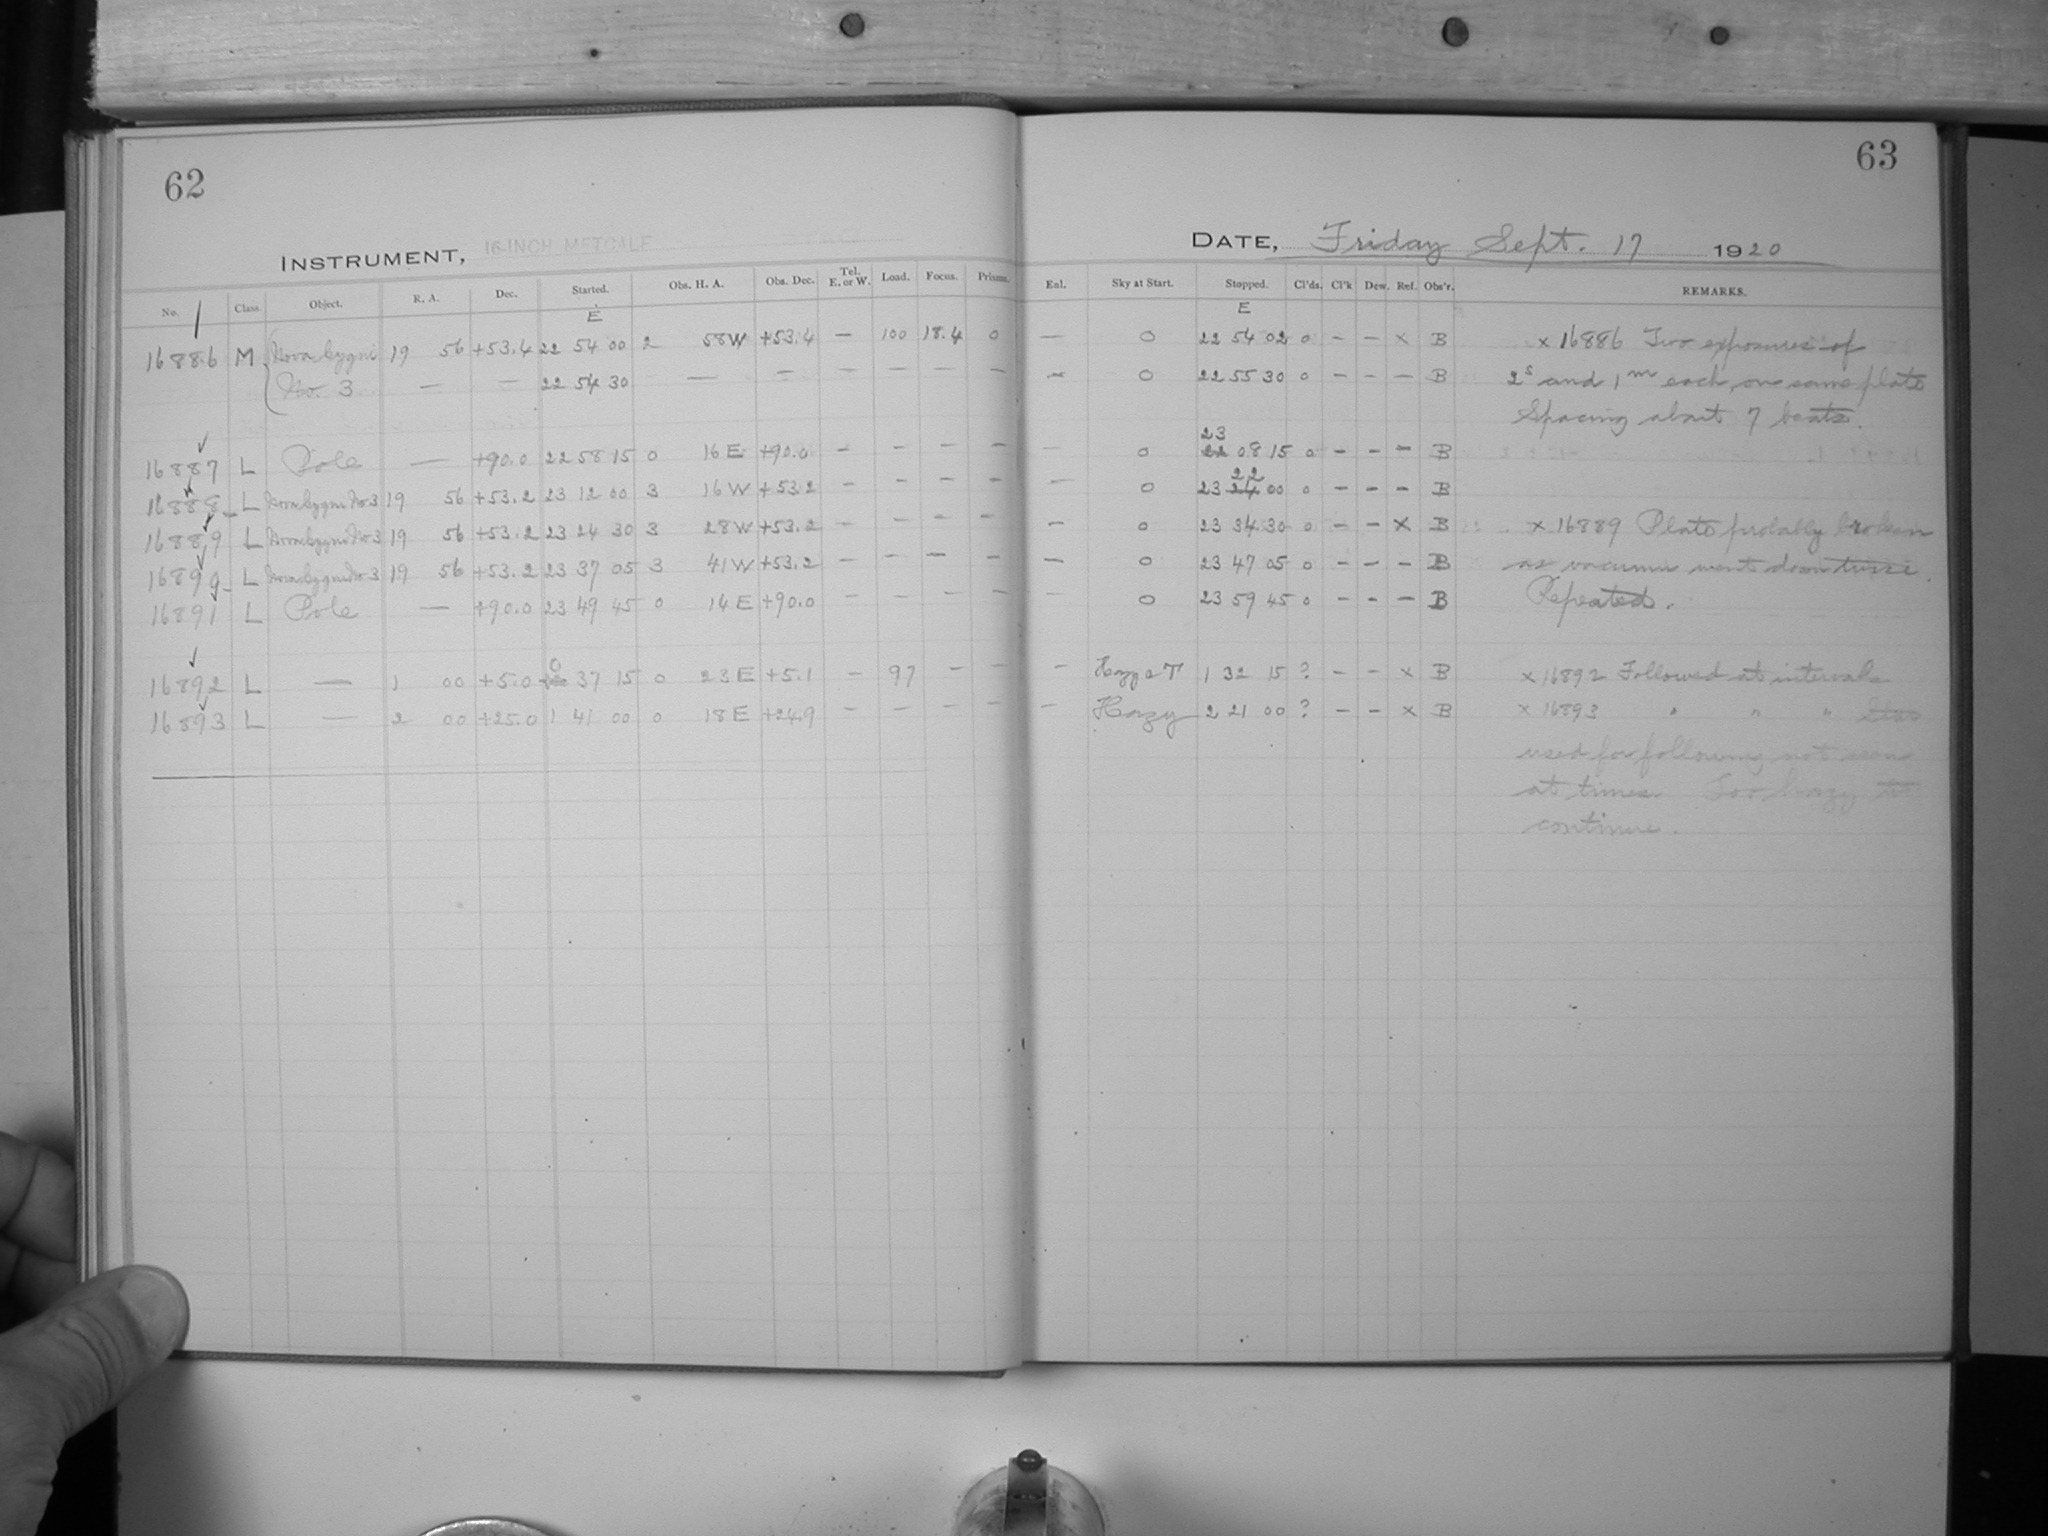 62
INSTRUMENT, 16-INCH METCALF
No. Class. Object. R. A. Dec. Started. Obs. H. A. Obs. Dec. Tel. E. or W. Load. Focus. Prisms.
E
16886 M Nova Cygni 19 56 +53.4 22 54 00 2 58W +53.4 — 100 18.4 0
No. 3 — — 22 54 30 — — — — — —
16887 L Pole — +90.0 22 58 15 0 16E +90.0 — — — —
16888 L Nova Cygni No 3 19 56 +53.2 23 12 00 3 16W +53.2 — — — —
16889 L Nova Cygni No 3 19 56 +53.2 23 24 30 3 28W +53.2 — — — —
16890 L Nova Cygni No 3 19 56 +53.2 23 37 05 3 41W +53.2 — — — —
16891 L Pole — +90.0 23 49 45 0 14E +90.0 — — — —
16892 L — 1 00 +5.0 0 37 15 0 23E +5.1 — 97 — —
16893 L — 2 00 +25.0 1 41 00 0 18E +24.9 — — — —
63
DATE, Friday Sept. 17 1920
Enl. Sky at Start. Stopped. Cl'ds. Cl'k Dew. Ref. Obs'r. REMARKS.
E
— 0 22 54 02 0 — — x B x 16886 Two exposures of
— 0 22 55 30 0 — — — B 2s and 1m each, on same plate
Spacing about 7 beats.
23
— 0 22 08 15 0 — — — B
22
— 0 23 24 00 0 — — — B
— 0 23 34 30 0 — — x B x 16889 Plate probably broken
— 0 23 47 05 0 — — — B as vacuum went down twice.
— 0 23 59 45 0 — — — B Repeated.
— Hazy 1 32 15 ? — — x B x 16892 Followed at intervals
— Hazy 2 21 00 ? — — x B x 16893 " " " Star
used for following not seen
at times. Too hazy to
continue.